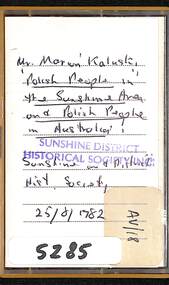 Mr. Marian Kaluski,
"Polish People in
the Sunshine Area
and Polish People
in Australia"
SUNSHINE DISTRICT
HISTORICAL SOCIETY
Sunshine and District
Hist. Society
25/8/1982
AV/18
5285